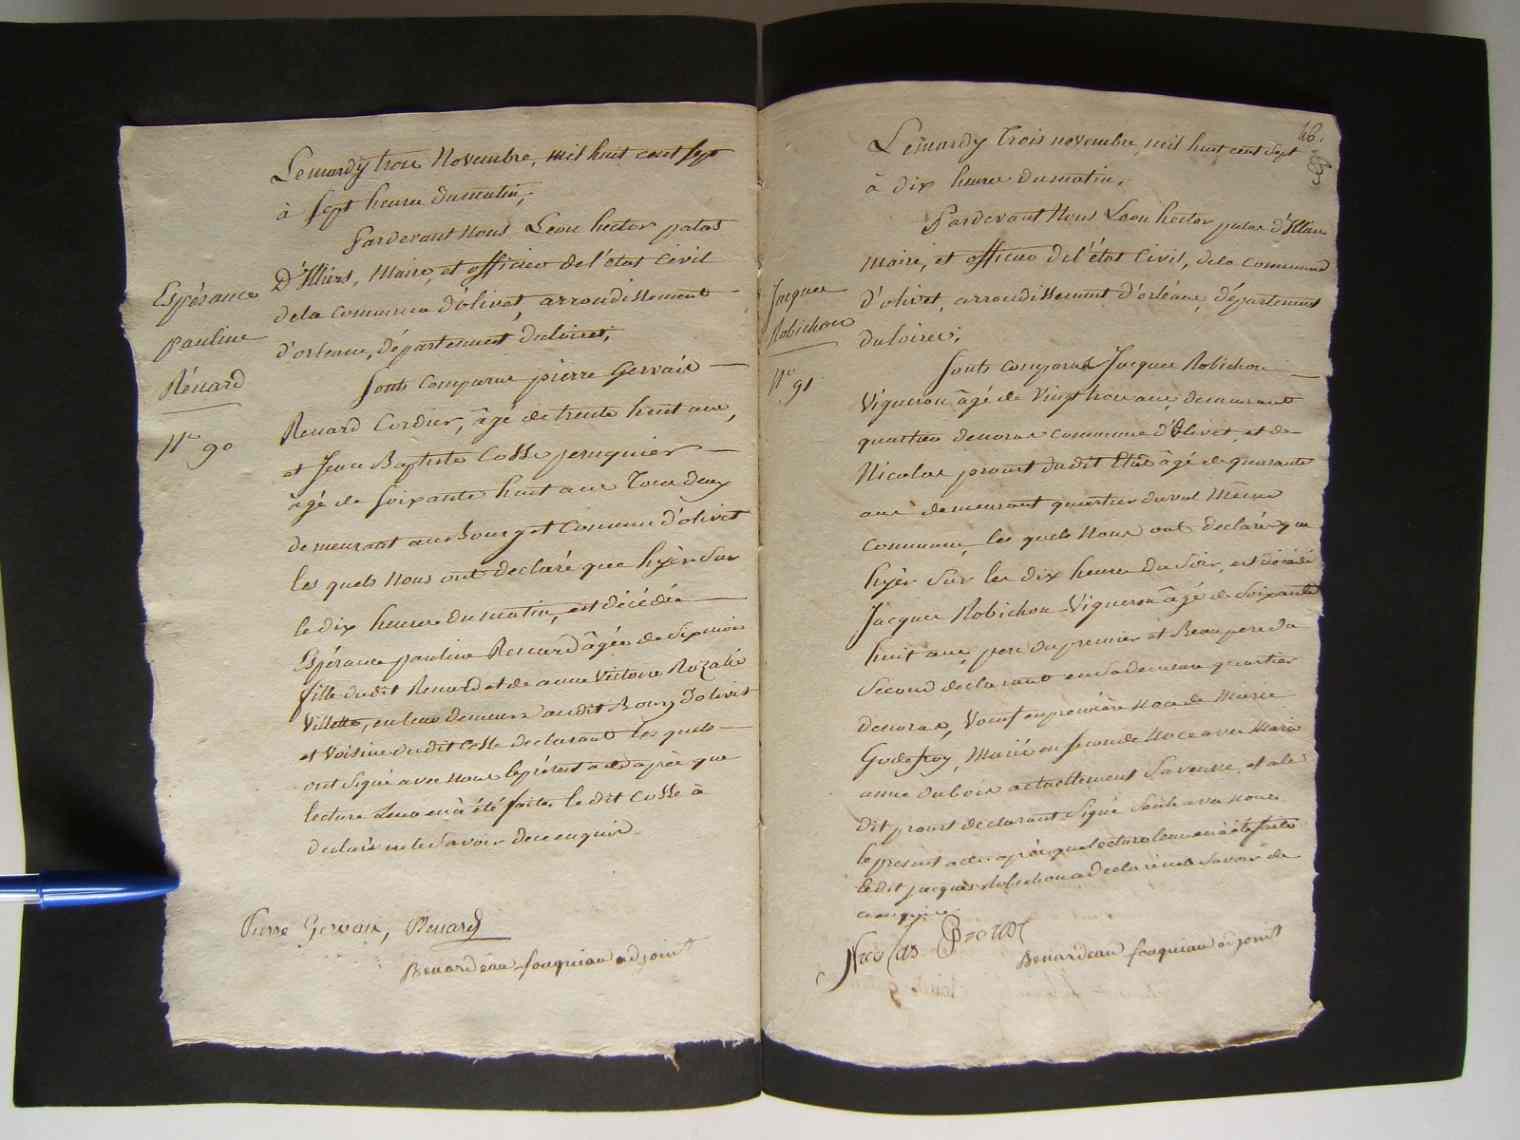 Le mardy trois Novembre, mil huit cent sept
à sept heure du matin,
Pardevant Nous Léon hector patas
D'Illiers, Maire, et officier de l'état Civil
de la Commune d'olivet, arrondissement
d'orleans, département du loiret;
Sont Comparus pierre Gervais
Renard Cordier, âgé de trente huit ans,
et Jean Baptiste Cosse peruquier
âgé de soixante huit ans Tous deux
demeurant au Bourg et Commune d'olivet
les quels Nous ont declaré que hyèr sur
le dix heures du matin, est décédée
Espérance pauline Renard âgée de six mois
fille dudit Renard et de anne Victoire Rozalie
Villette, en leur demeure au dit Bourg D'olivet
et Voisine du dit Cosse declarant les quels
ont signé avec Nous le présent acte après que
lecture leur en à été faite, le dit Cosse à
declaré ne le savoir de ce enquis.
Espérance
pauline
Rénard
N.º 90
Pierre Gervais, Renard
Benardeau fouquiau adjoint
46.
Le mardy Trois novembre, mil huit cent sept
à dix heures du matin,
Pardevant Nous Léon hector patas d'Illiers
Maire, et officier de l'état Civil, de la Commune
d'olivet, arrondissement d'orléans, département
du loiret;
Sont comparus Jacques Robichon
Vigneron âgé de Vingt trois ans, demeurant
quartier de Commune d'Olivet, et de
Nicolas prout dudit état âgé de quarante
ans demeurant quartier du val Même
Commune, les quels Nous ont declaré que
hyèr sur les dix heures du Soir, est décédé
Jacques Robichon Vigneron âgé de Soixante
huit ans, pere du premier et Beau pere du
Second declarant en sa demeure quartier
Veuf en première Noce de Marie
Godefroy, Marié en seconde Noce avec Marie
anne Dubois actuellement sa veuve, et a le
dit prout declarant Signé seul avec nous
le present acte après que lecture leur en à été faite
le dit jacques Robichon a declaré ne le savoir de
ce enquis.
Jacques
Robichon
N.º 91
Nicolas Prout
Benardeau fouquiau adjoint